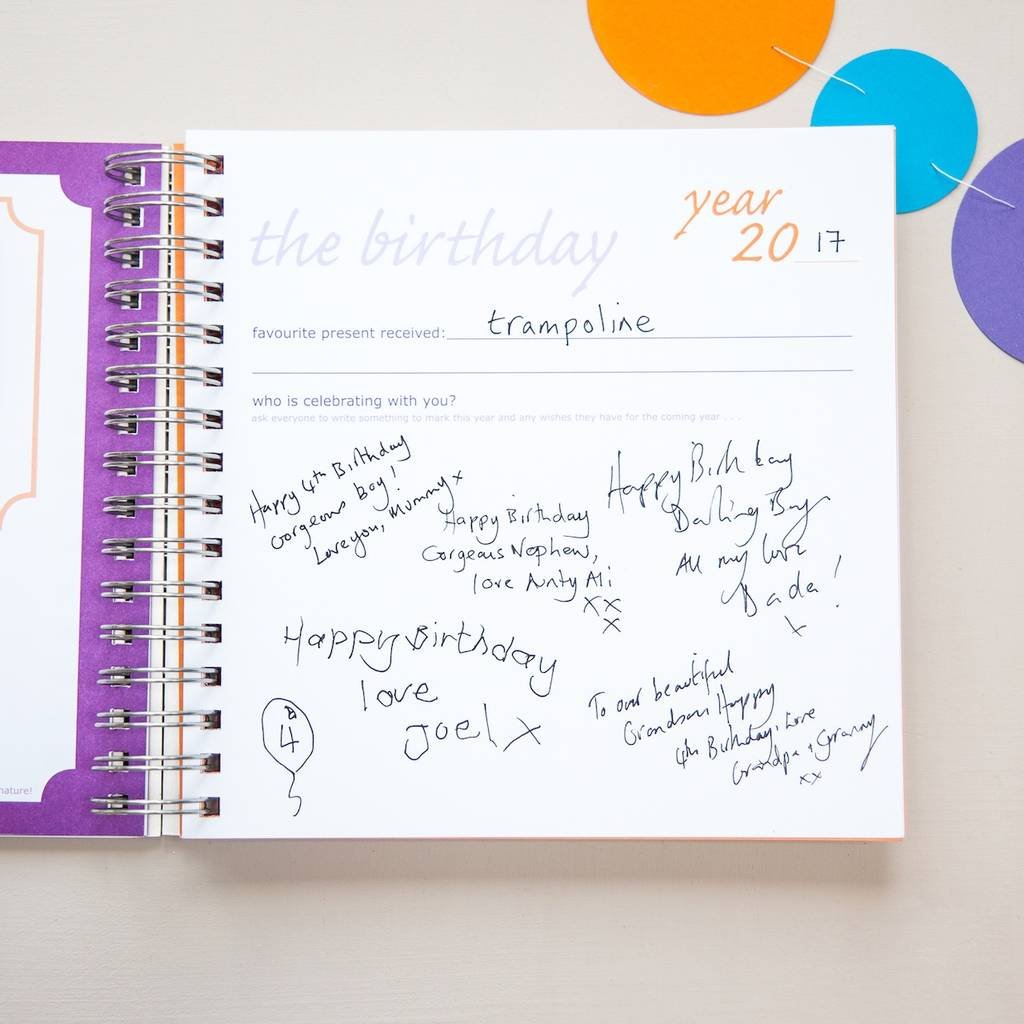 the birthday
year
20 17
favourite present received: trampoline
who is celebrating with you?
ask everyone to write something to mark this year and any wishes they have for the coming year . . .
Happy 4th Birthday
Gorgeous Boy!
Love you, Mummy x
Happy Birthday
Gorgeous Nephew,
love Aunty Ali
xx
x
Happy Birthday
Darling Boy
All my love
Dada!
x
Happy Birthday
love
Joel x
4
To our beautiful
Grandson Happy
4th Birthday, Love
Grandpa + Granny
xx
nature!